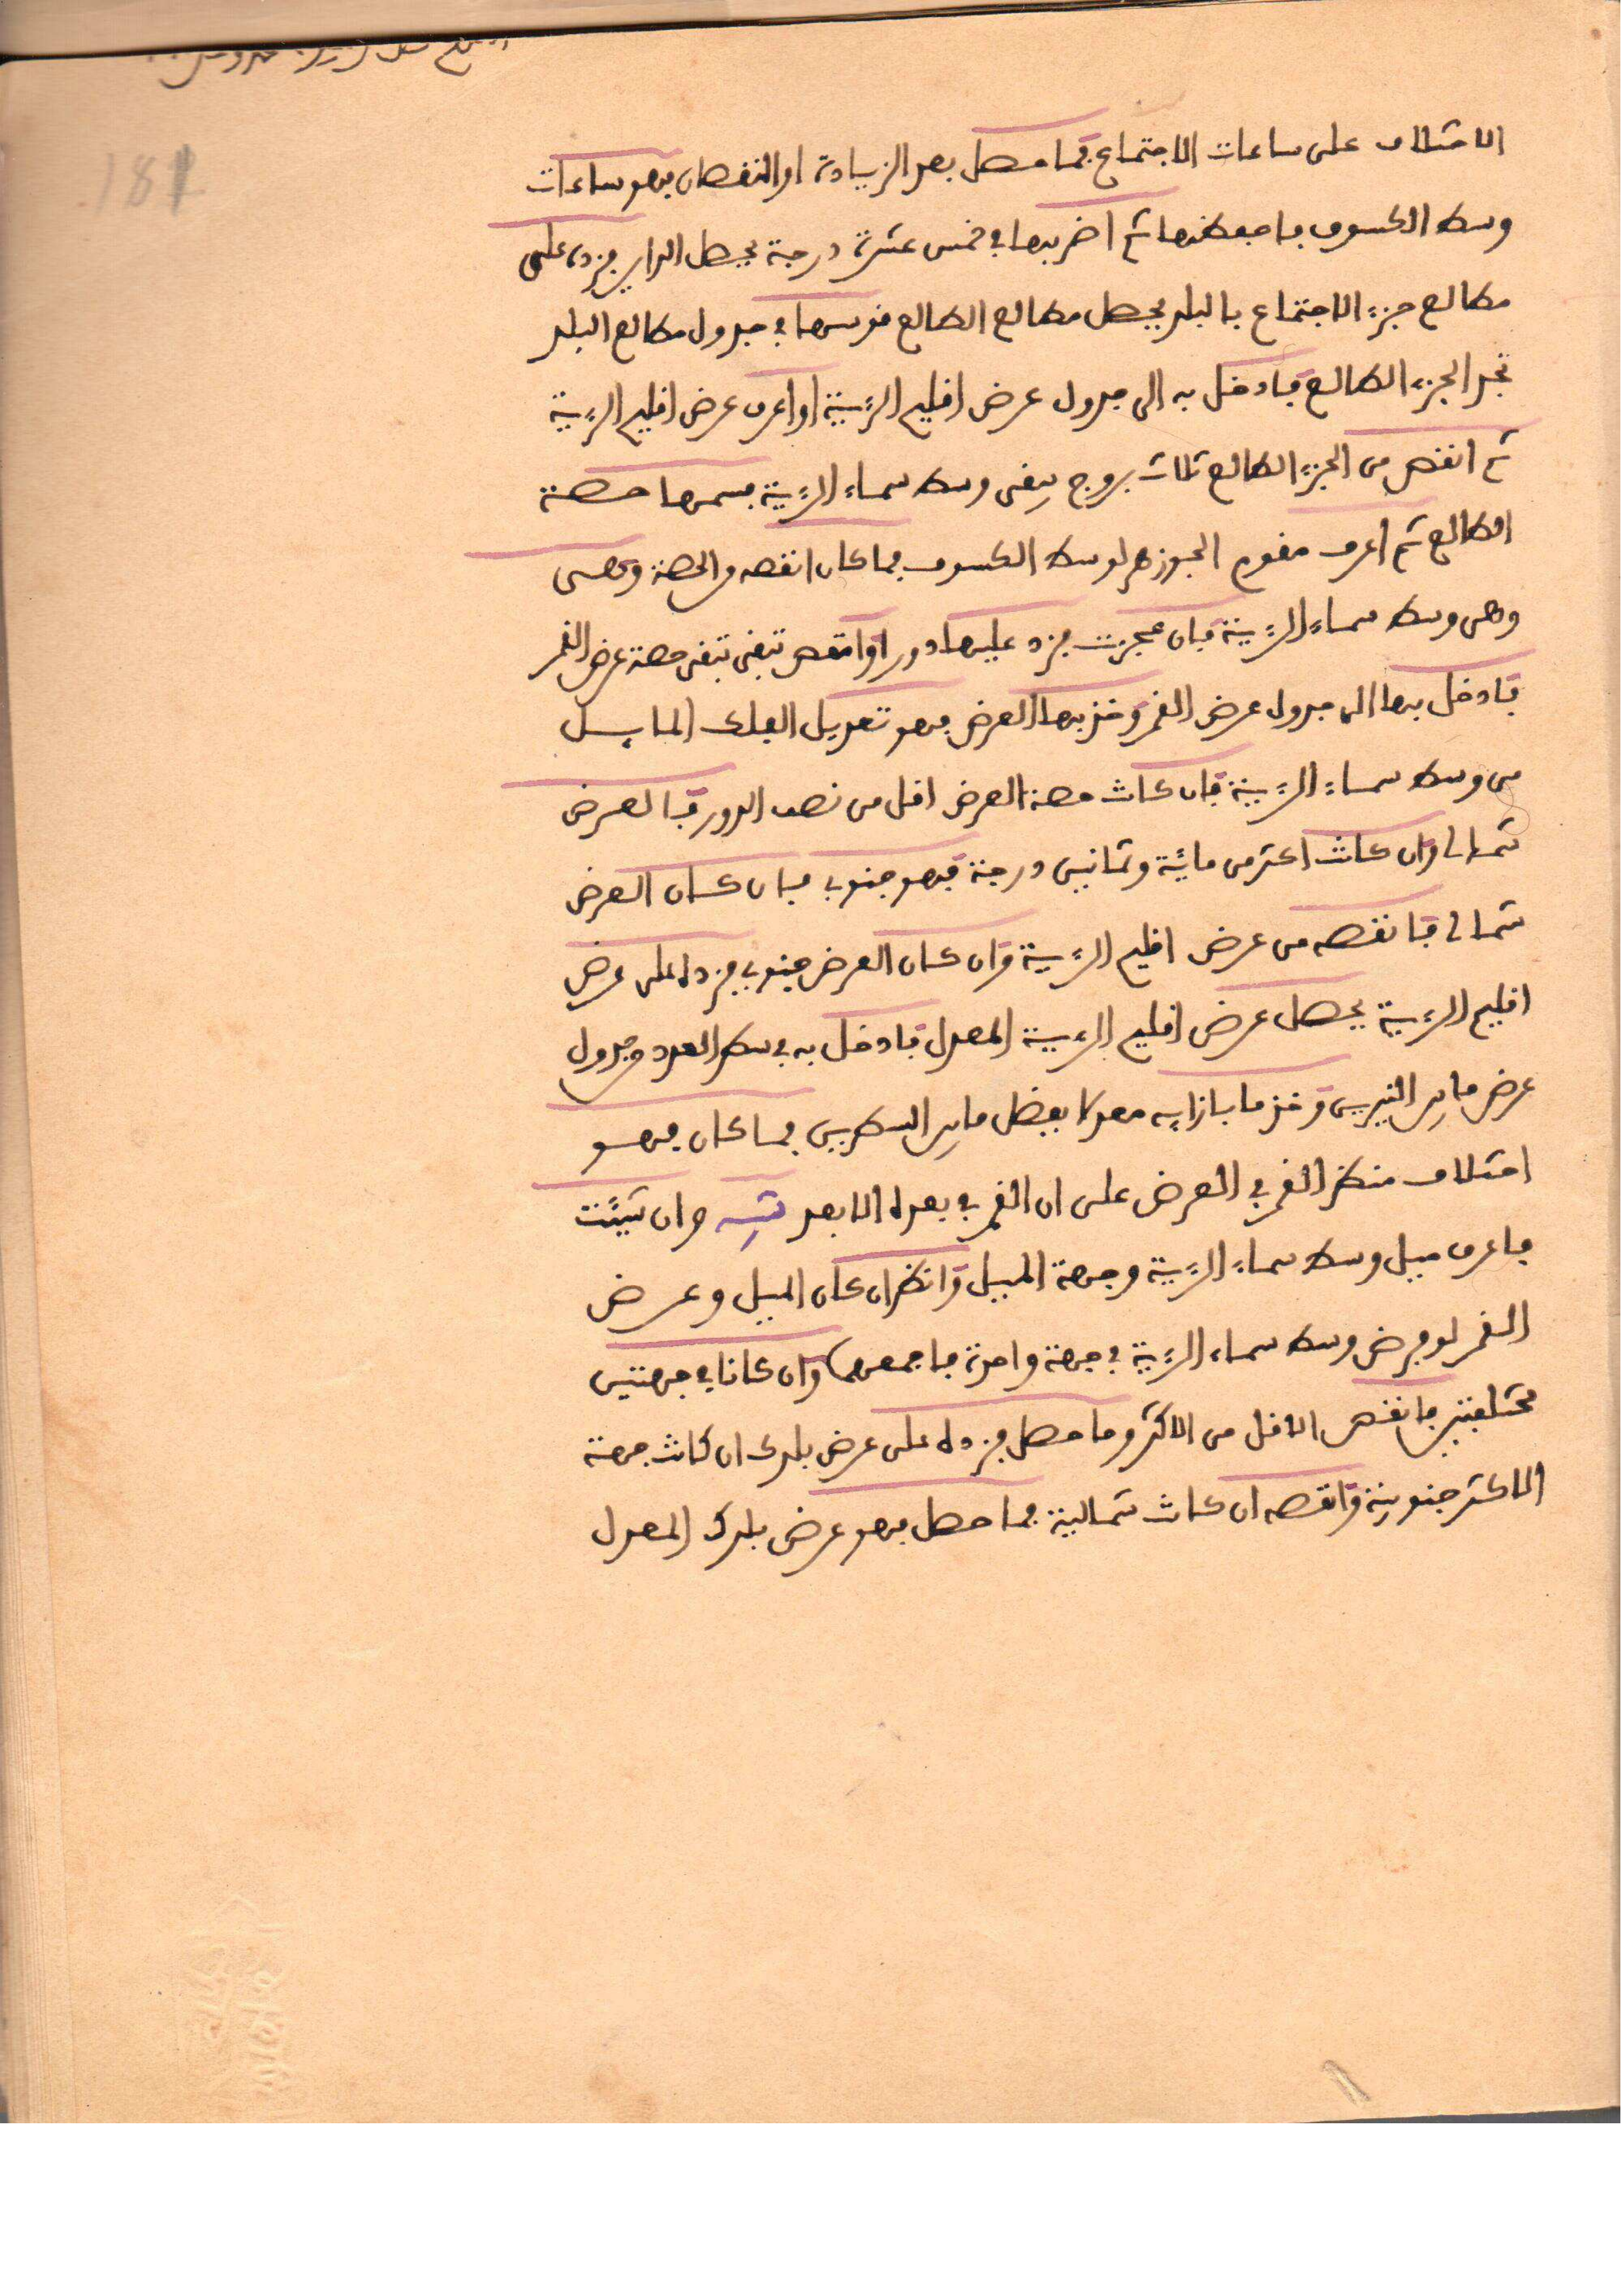 181
الاختلاف على ساعات الاجتماع فما حصل بعد الزيادة او النقصان فهو ساعات
وسط الكسوف فاحفظها ثم اضربها في خمس عشرة درجة يحصل الداير فزده على
مطالع جزء الاجتماع بالبلد يحصل مطالع الطالع قوسها في جدول مطالع البلد
تجد الجزء الطالع فادخل به الى جدول عرض اقليم الرءية او اعرف عرض اقليم الرءية
ثم انقص من الجزء الطالع ثلاث بروج يبقى وسط سماء الرءية فسمها حصة
الطالع ثم اعرف مقوم الجوزهر لوسط الكسوف فما كان انقصه من الحصة
وهي وسط سماء الرءية فان عجزت فزد عليها دورا وانقص تبقى تبقى حصة عرض القمر
فادخل بها الى جدول عرض القمر وخذ بها العرض فهو تعديل الفلك المايل
من وسط سماء الرءية فان كانت حصة العرض اقل من نصف الدور فالعرض
شمالي وان كانت اكثر من مائة وثمانين درجة فهو جنوبي فان كان العرض
شمالي فانقصه من عرض اقليم الرءية وان كان العرض جنوبي فزده على عرض
اقليم الرءية يحصل عرض اقليم الرءية المعدل فادخل به في سطر العدد وجدول
عرض ما بين النيرين وخذ ما بازايه معدلا بفضل ما بين السطرين فما كان فهو
اختلاف منظر القمر في العرض على ان القمر في بعده الابعد تنبيه وان شيئت
فاعرف ميل وسط سماء الرءية وجهة الميل وانظر ان كان الميل وعرض
القمر لو فرض وسط سماء الرءية في جهة واحدة فاجمعهما وان كانا في جهتين
مختلفتين فانقص الاقل من الاكثر وما حصل فزده على عرض بلدك ان كانت جهة
الاكثر جنوبية وانقصه ان كانت شمالية فما حصل فهو عرض بلدك المعدل